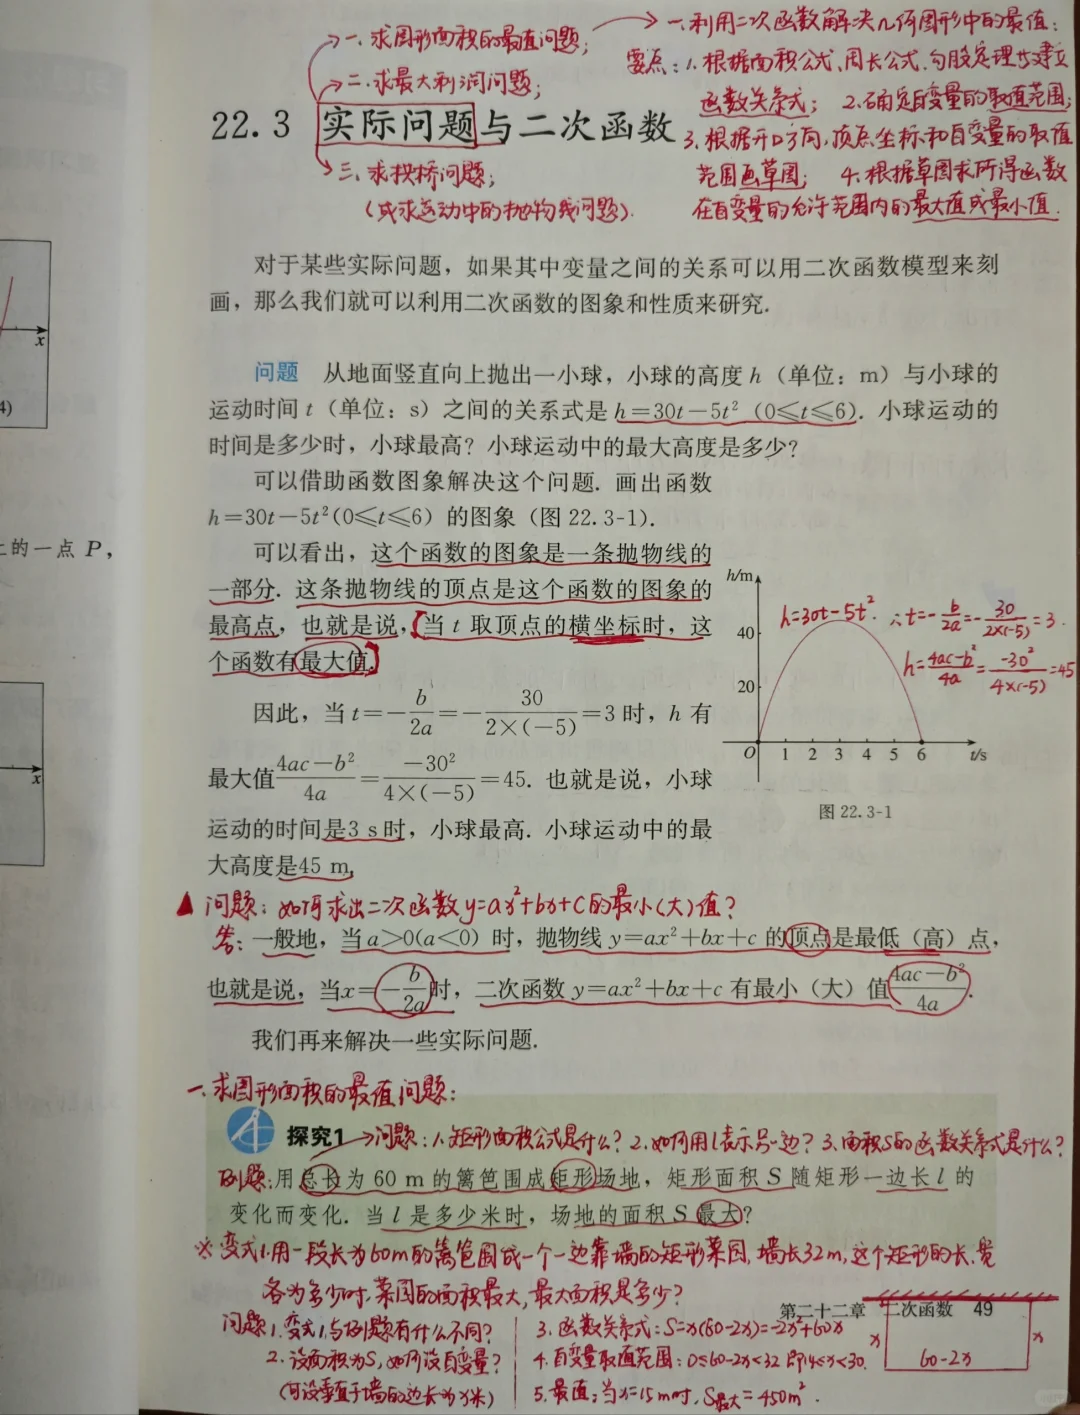 一.求图形面积的最值问题;
二.求最大利润问题;
22.3 实际问题与二次函数
三.求拱桥问题;
(或求运动中的抛物线问题).
一.利用二次函数解决几何图形中的最值:
要点:1.根据面积公式、周长公式、勾股定理等建立
函数关系式; 2.确定自变量的取值范围;
3.根据开口方向,顶点坐标和自变量的取值
范围画草图; 4.根据草图求所得函数
在自变量的允许范围内的最大值或最小值.
4)
x
上的一点 P,
x
对于某些实际问题,如果其中变量之间的关系可以用二次函数模型来刻
画,那么我们就可以利用二次函数的图象和性质来研究.
问题 从地面竖直向上抛出一小球,小球的高度 h(单位:m)与小球的
运动时间 t(单位:s)之间的关系式是 h=30t-5t²(0≤t≤6). 小球运动的
时间是多少时,小球最高?小球运动中的最大高度是多少?
可以借助函数图象解决这个问题. 画出函数
h=30t-5t²(0≤t≤6)的图象(图 22.3-1).
可以看出,这个函数的图象是一条抛物线的
一部分. 这条抛物线的顶点是这个函数的图象的
最高点,也就是说,[当 t 取顶点的横坐标时,这
个函数有最大值.]
因此,当 t=-b/2a=-30/2×(-5)=3 时,h 有
最大值 4ac-b²/4a=-30²/4×(-5)=45. 也就是说,小球
运动的时间是3 s时,小球最高. 小球运动中的最
大高度是45 m.
h/m
40
20
O 1 2 3 4 5 6 t/s
h=30t-5t². ∴t=-b/2a=-30/2×(-5)=3.
h=4ac-b²/4a=-30²/4×(-5)=45
图 22.3-1
▲问题:如何求出二次函数y=ax²+bx+c的最小(大)值?
答:一般地,当 a>0(a<0)时,抛物线 y=ax²+bx+c 的顶点是最低(高)点,
也就是说,当x=-b/2a时,二次函数 y=ax²+bx+c 有最小(大)值 4ac-b²/4a.
我们再来解决一些实际问题.
一.求图形面积的最值问题:
探究1 →问题:1.矩形面积公式是什么?2.如何用l表示另一边?3.面积S的函数关系式是什么?
例题:用总长为 60 m 的篱笆围成矩形场地,矩形面积 S 随矩形一边长 l 的
变化而变化. 当 l 是多少米时,场地的面积 S 最大?
※变式1.用一段长为60m的篱笆围成一个一边靠墙的矩形菜园,墙长32m,这个矩形的长、宽
各为多少时,菜园的面积最大,最大面积是多少?
第二十二章 二次函数 49
问题1.变式1与例题有什么不同?
2.设面积为S,如何设自变量?
(可设垂直于墙的边长为x米)
3.函数关系式:S=x(60-2x)=-2x²+60x
4.自变量取值范围:0≤60-2x<32 即14≤x<30.
5.最值:当x=15m时,S最大=450m².
x
60-2x
x